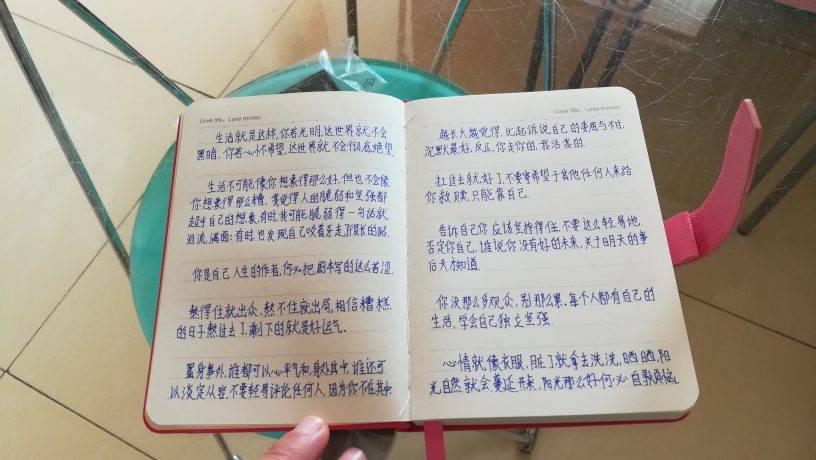 Love life, Love miniso
生活就是这样,你若光明,这世界就不会
黑暗.你若心怀希望,这世界就不会彻底绝望.
生活不可能像你想象得那么好,但也不会像
你想象得那么糟,我觉得人的脆弱和坚强都
超乎自己的想象,有时我可能脆弱得一句话就
泪流满面;有时也发现自己咬着牙走了很长的路.
你是自己人生的作者,何必把剧本写的这么苦涩.
熬得住就出众,熬不住就出局,相信糟糕
的日子熬过去了,剩下的就是好运气。
置身事外,谁都可以心平气和,身处其中,谁还可
以淡定从容.不要轻易评论任何人,因为你不在其中.
Love life, Love miniso
越长大越觉得,比起诉说自己的委屈与不甘,
沉默最好,反正,你走你的,我活我的.
扛过去就好了,不要寄希望于其他任何人来给
你救赎,只能靠自己.
告诉自己你应该坚持得住,不要这么轻易地
否定你自己,谁说你没有好的未来,关于明天的事
后天才知道.
你没那么多观众,别那么累,每个人都有自己的
生活,学会自己独立坚强.
心情就像衣服,脏了就拿去洗洗,晒晒,阳
光自然就会蔓延开来,阳光那么好,何必自